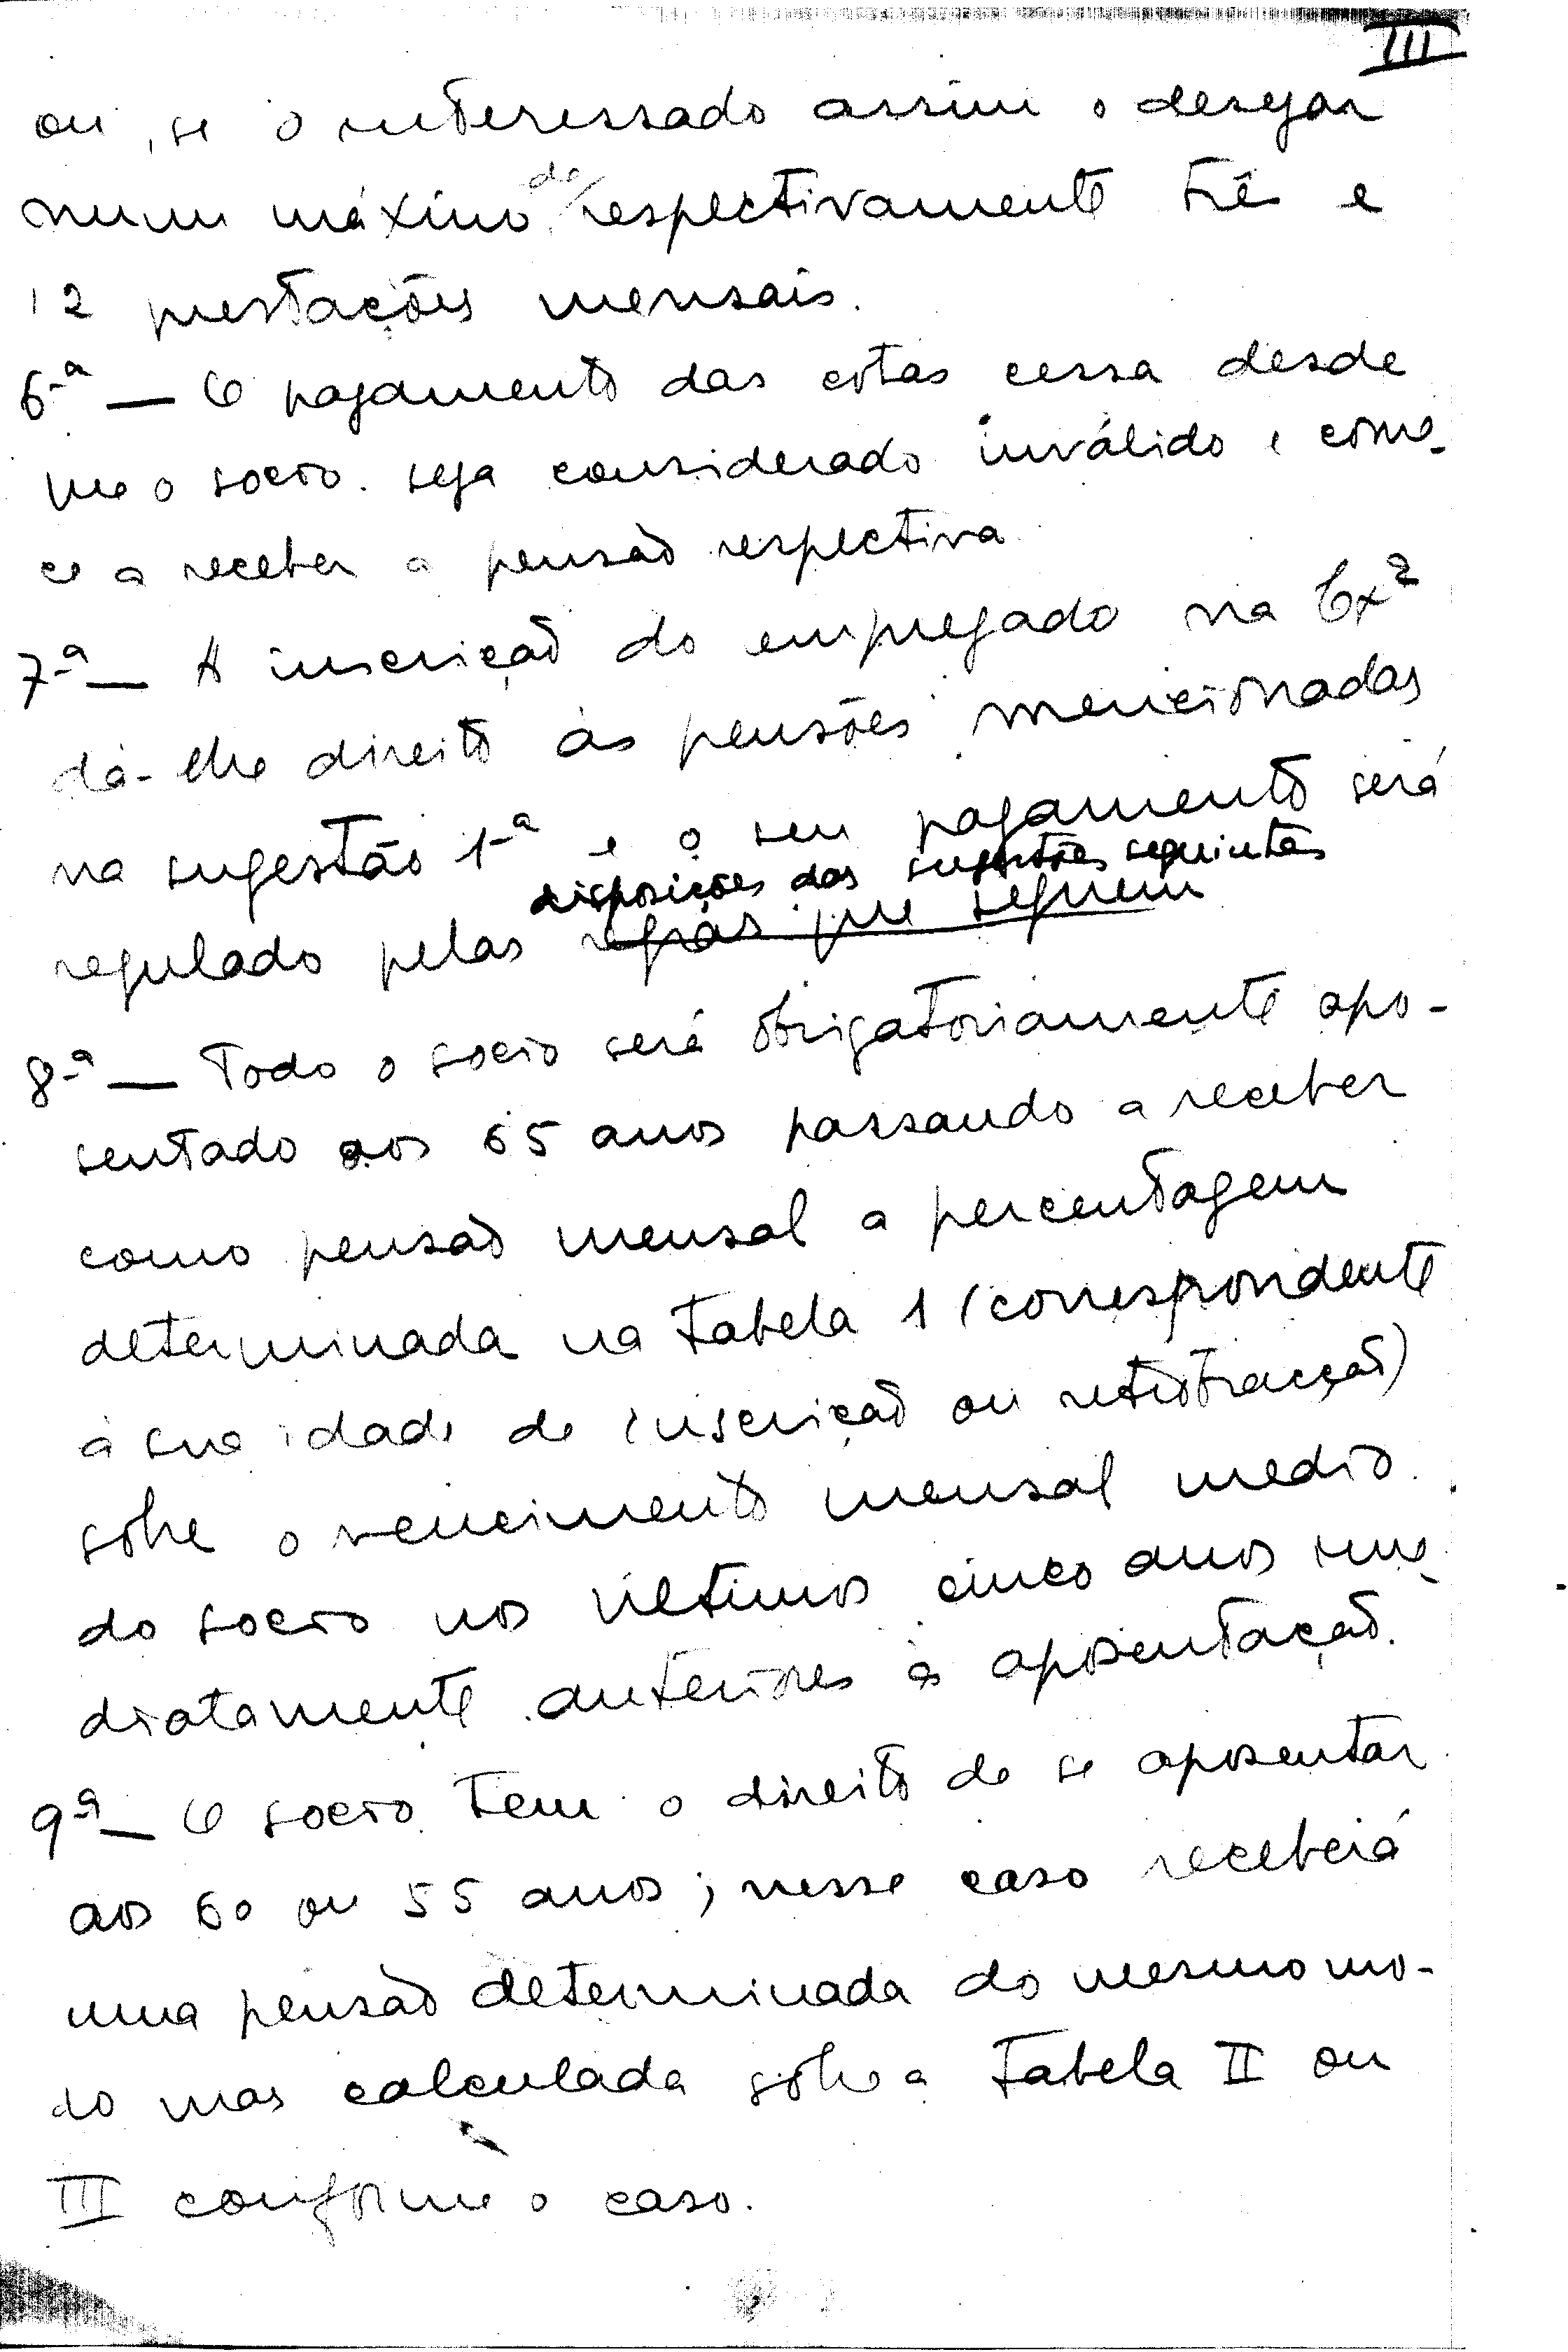 III
ou, se o interessado assim o desejar
num máximo de respectivamente três e
12 prestações mensais.
6ª — O pagamento das cotas cessa desde
que o socio seja considerado inválido e come-
ce a receber a pensão respectiva
7ª — A inscrição do empregado na Cxª
dá-lhe direito ás pensões mencionadas
na sugestão 1ª e o seu pagamento será
disposições das sugestões seguintes
regulado pelas regras que seguem
8ª — Todo o socio será obrigatoriamente apo-
sentado aos 65 anos passando a receber
como pensão mensal a percentagem
determinada na tabela 1 (correspondente
á sua idade de inscrição ou retrotracção)
sobre o vencimento mensal medio
do socio nos últimos cinco anos ime-
diatamente anteriores á aposentação.
9ª — O socio tem o direito de se aposentar
aos 60 ou 55 anos; nesse caso receberá
uma pensão determinada do mesmo mo-
do mas calculada sobre a tabela II ou
III conforme o caso.